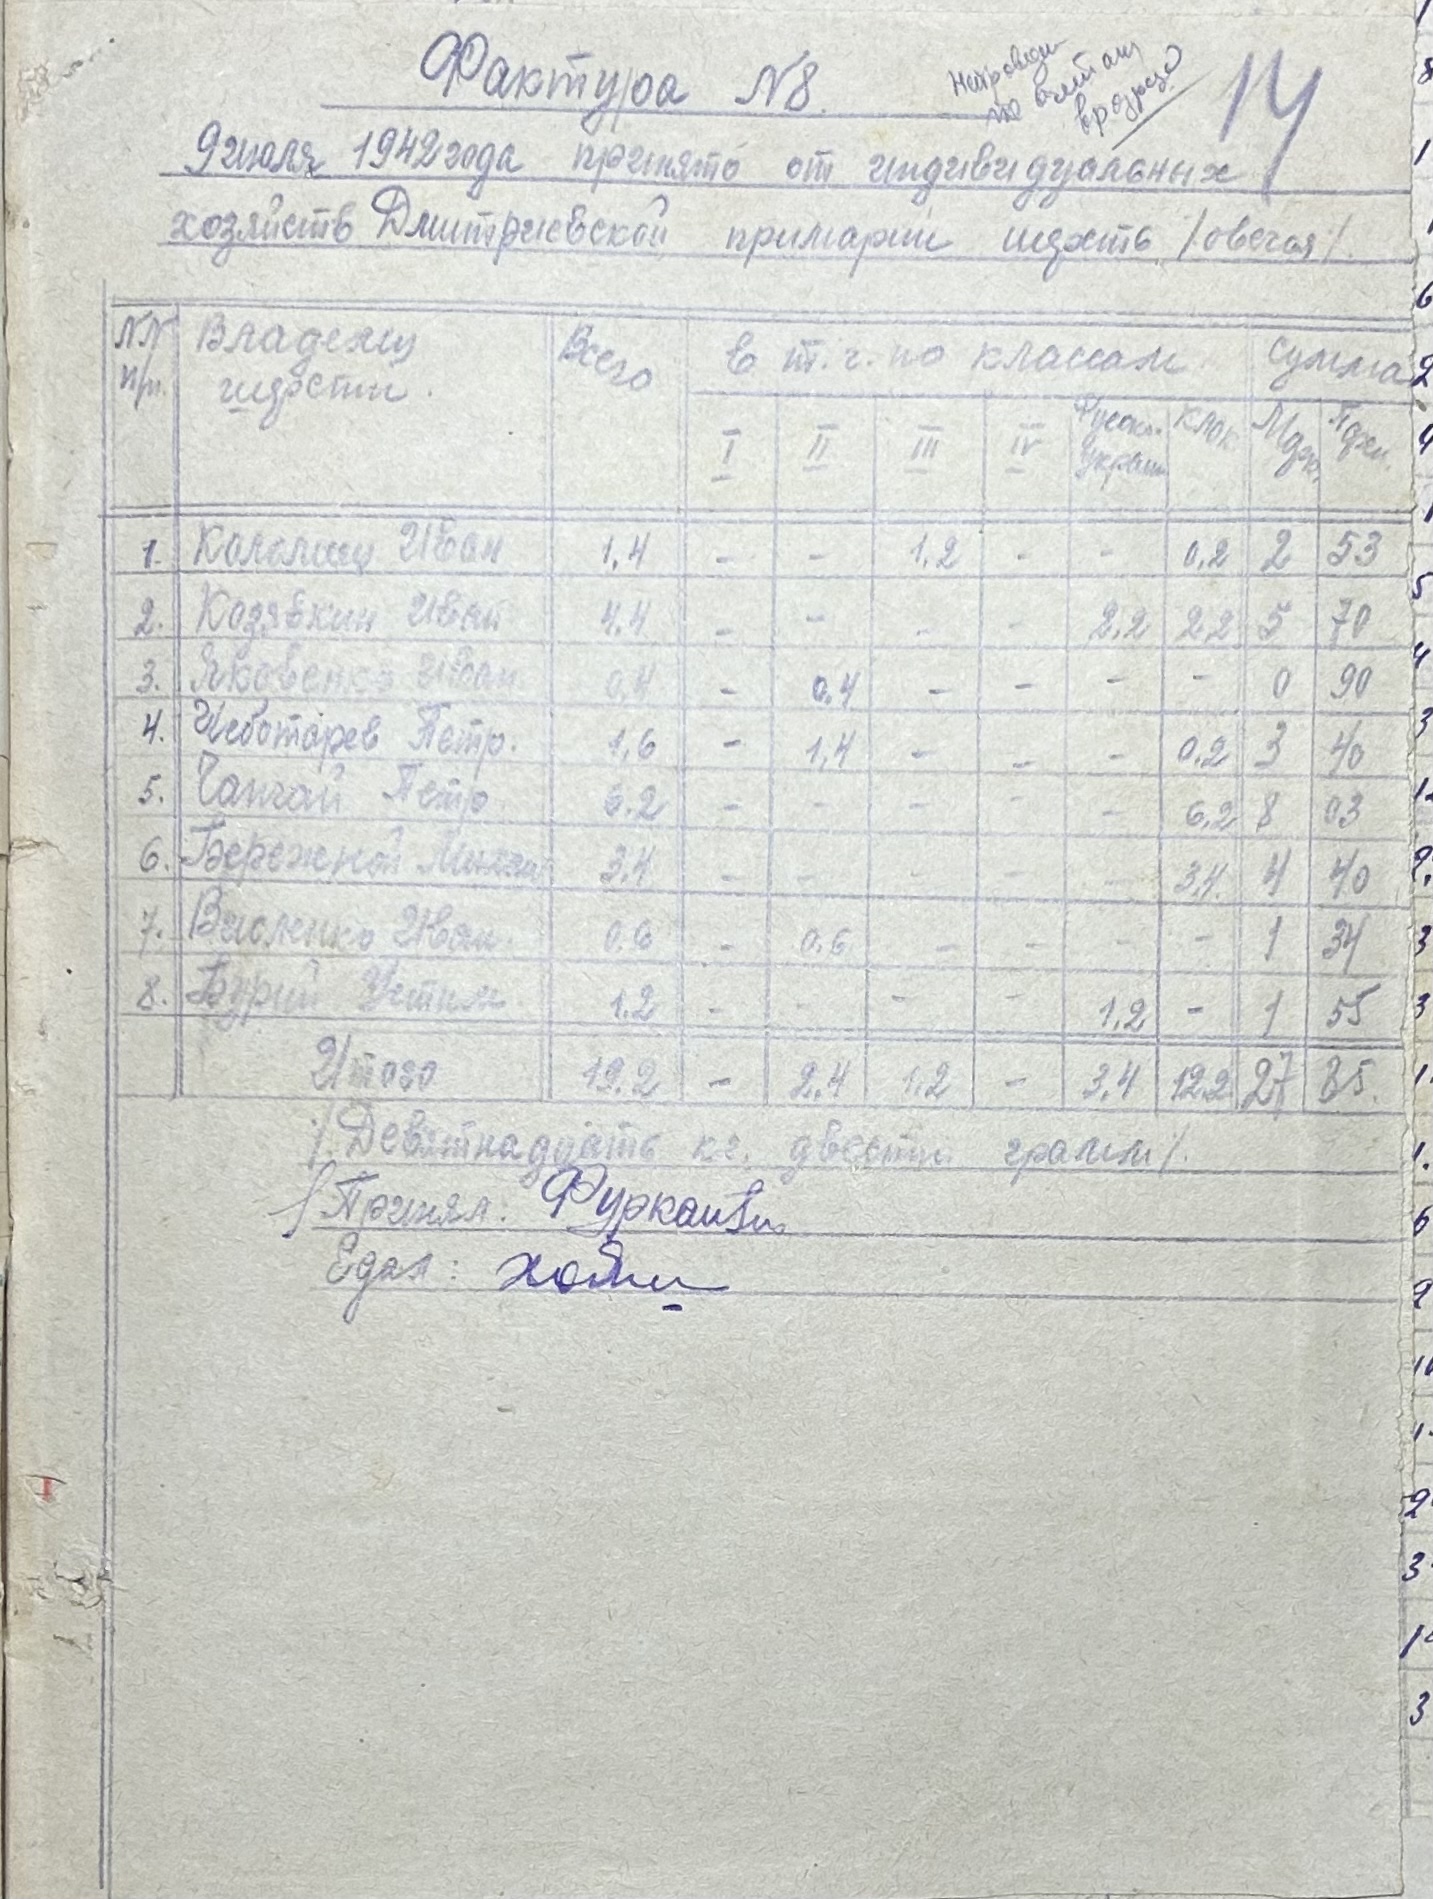 Фактура N8.
14
9 июля 1942 года принято от индивидуальных
хозяйств Дмитриевской примарии шерсть /овечья/.
NN п/п. Владелец шерсти. Всего в т.ч. по классам Сумма
I II III IV Русск. украин. клок Марк. Пфен.
1. Иван 1,4 - - 1,2 - - 0,2 2 53
2. Козявкин Иван 4.4 - - - - 2,2 2,2 5 70
3. Яковенко Иван 0,4 - 0,4 - - - - 0 90
4. Чеботарев Петр. 1,6 - 1,4 - - - 0,2 3 40
5. Петр 6.2 - - - - - 6,2 8 03
6. Бережной 3,4 - - - - - 3,4. 4 40
7. Иван. 0.6 - 0.6 - - - - 1 34
8. Бурий Устим 1.2 - - - - 1,2 - 1 55
Итого 19.2 - 2,4 1,2 - 3,4 12.2 27 85.
/. Девятнадцать кг. двести грамм/.
Принял:
Сдал: